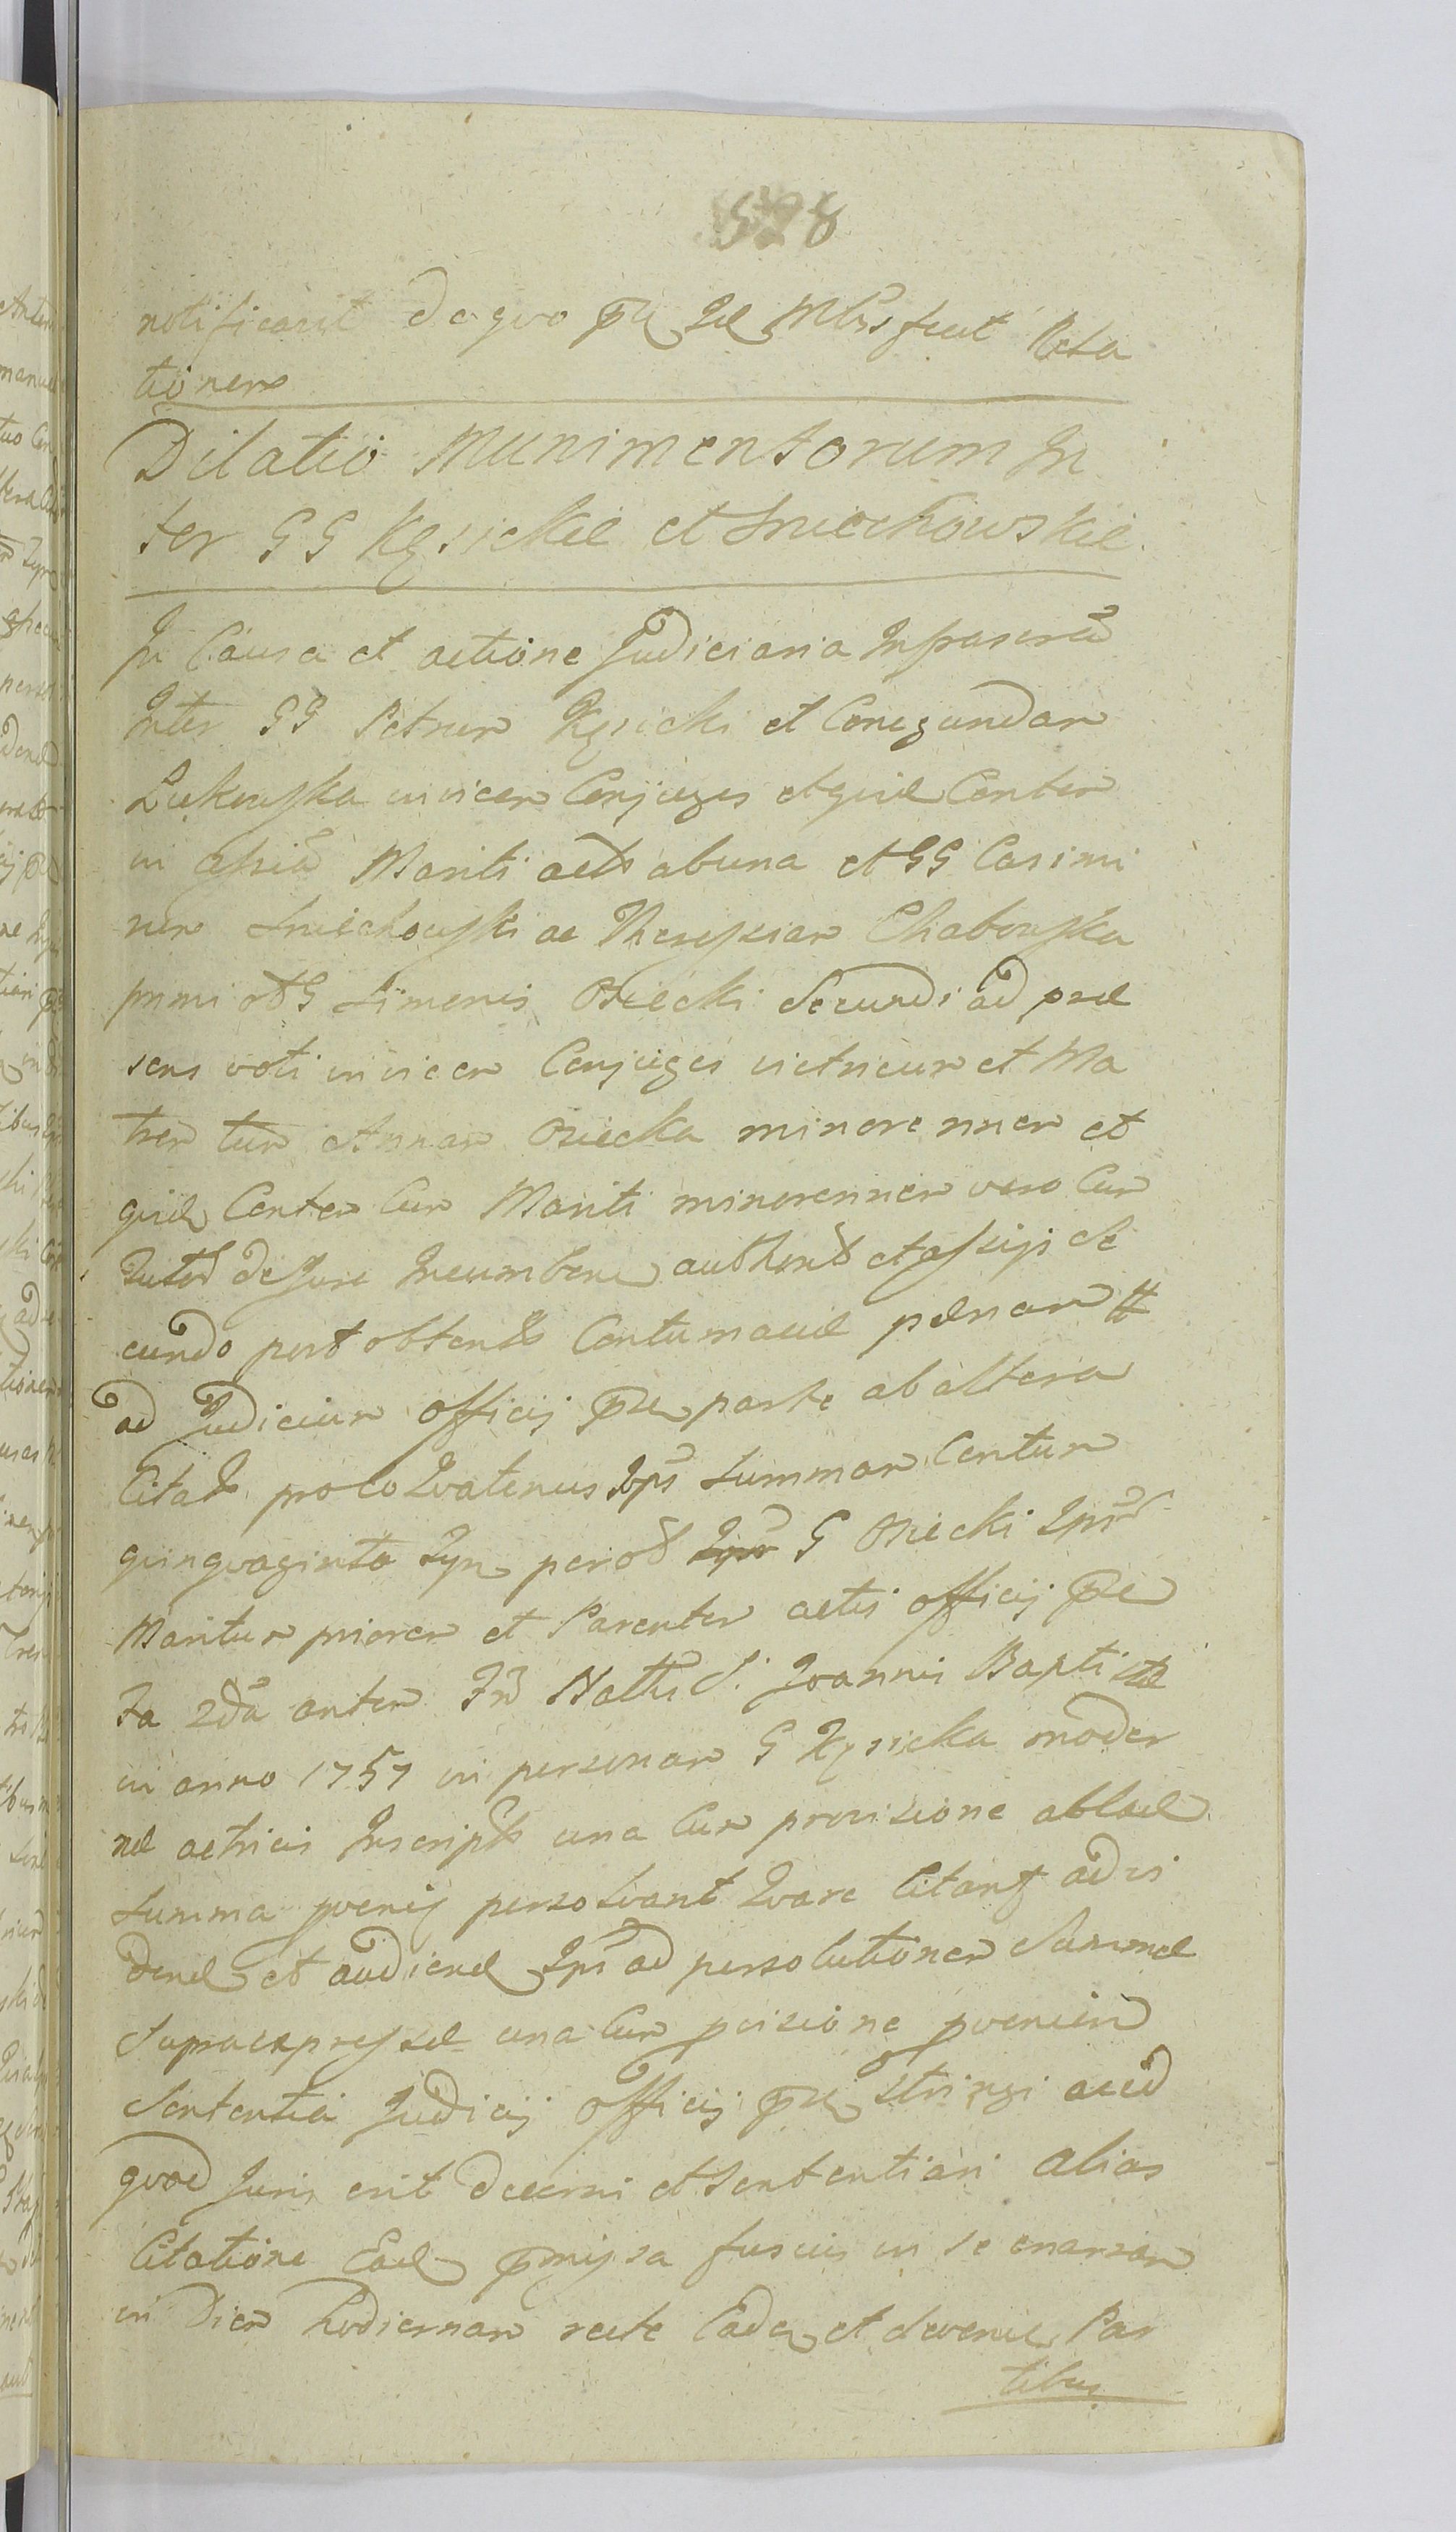 578
notificavit de quo pti Jud Mtris fecit Rela
tionem
Dilatio Munimentorum In
ter GG Kęsickie et Sniechowskie
In Causa et actione Judiciaria Infrascrta
Inter GG Petrum Kęsicki et Conegundam
Łukowska invicem Conjuges et quid Contem
in assia Mariti acts ab una et GG Casimi
rum Sniechowski ac Theressiam Chabowska
primi od G Simonis Osiecki Secundi ad prae
sens voti invicem Conjuges victricum et Ma
trem tum Annam Osiecka minorennem et
quid Contem Cum Mariti minorennem vero Cum
Tutor de Jure Incumben authorit et assisti Se
cundo post obtent Contumaciae paenam #
ad Judicium officij pti parte ab altera
Citat pro eo Quatenus Ipsi Summam Centum
quinquaginta Tyn per od G Osiecki Ipor
Maritum priorem et Parentem actis officij pti
Fa 2da ante Fm Nattis S. Joannis Baptistae
in anno 1757 in personam G Kęsicka moder
nae actricis Inscript una Cum provisione ablae
Summa pvenij persolvant Quare Citant ad vi
dend et audiend Ipsi ad persolutionem Summae
Supraexpressae una Cum pvisione pvenien
Sententia Judicij officij pti stringi acid
quod Juris erit decerni et Sententiari alias
Citatione Ead pmissa fusius in se enarran
in Diem hodiernam recte Caden et deveni Par
tibus